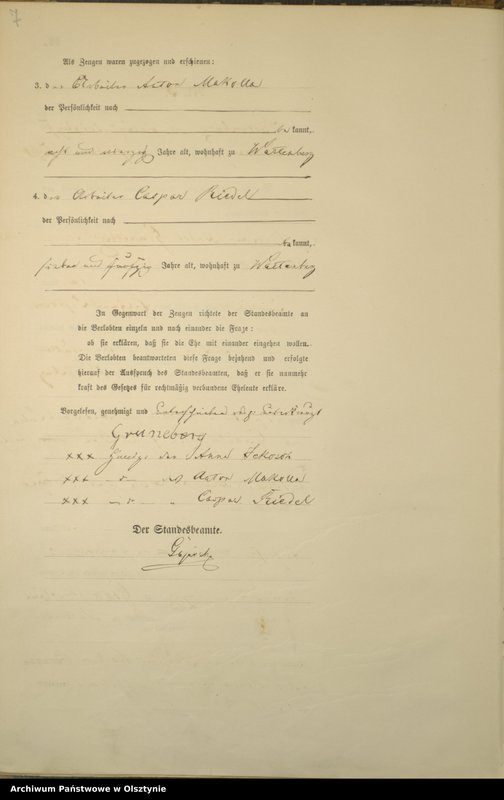 7
Als Zeugen waren zugezogen und erschienen:
3. der Arbeiter Anton Makolla
der Persönlichkeit nach
be kannt,
acht und Jahre alt, wohnhaft zu Wartenberg
4. der Arbeiter Caspar Riedel
der Persönlichkeit nach
be kannt,
sieben und fünfzig Jahre alt, wohnhaft zu Wartenberg
In Gegenwart der Zeugen richtete der Standesbeamte an
die Verlobten einzeln und nach einander die Frage:
ob sie erklären, daß sie die Ehe mit einander eingehen wollen.
Die Verlobten beantworteten diese Frage bejahend und erfolgte
hierauf der Ausspruch des Standesbeamten, daß er sie nunmehr
kraft des Gesetzes für rechtmäßig verbundene Eheleute erkläre.
Vorgelesen, genehmigt und unterschrieben resp. unterkreuzt
Gruneberg
xxx der Anna
xxx Anton Makolla
xxx " Caspar Riedel
Der Standesbeamte.
Archiwum Państwowe w Olsztynie